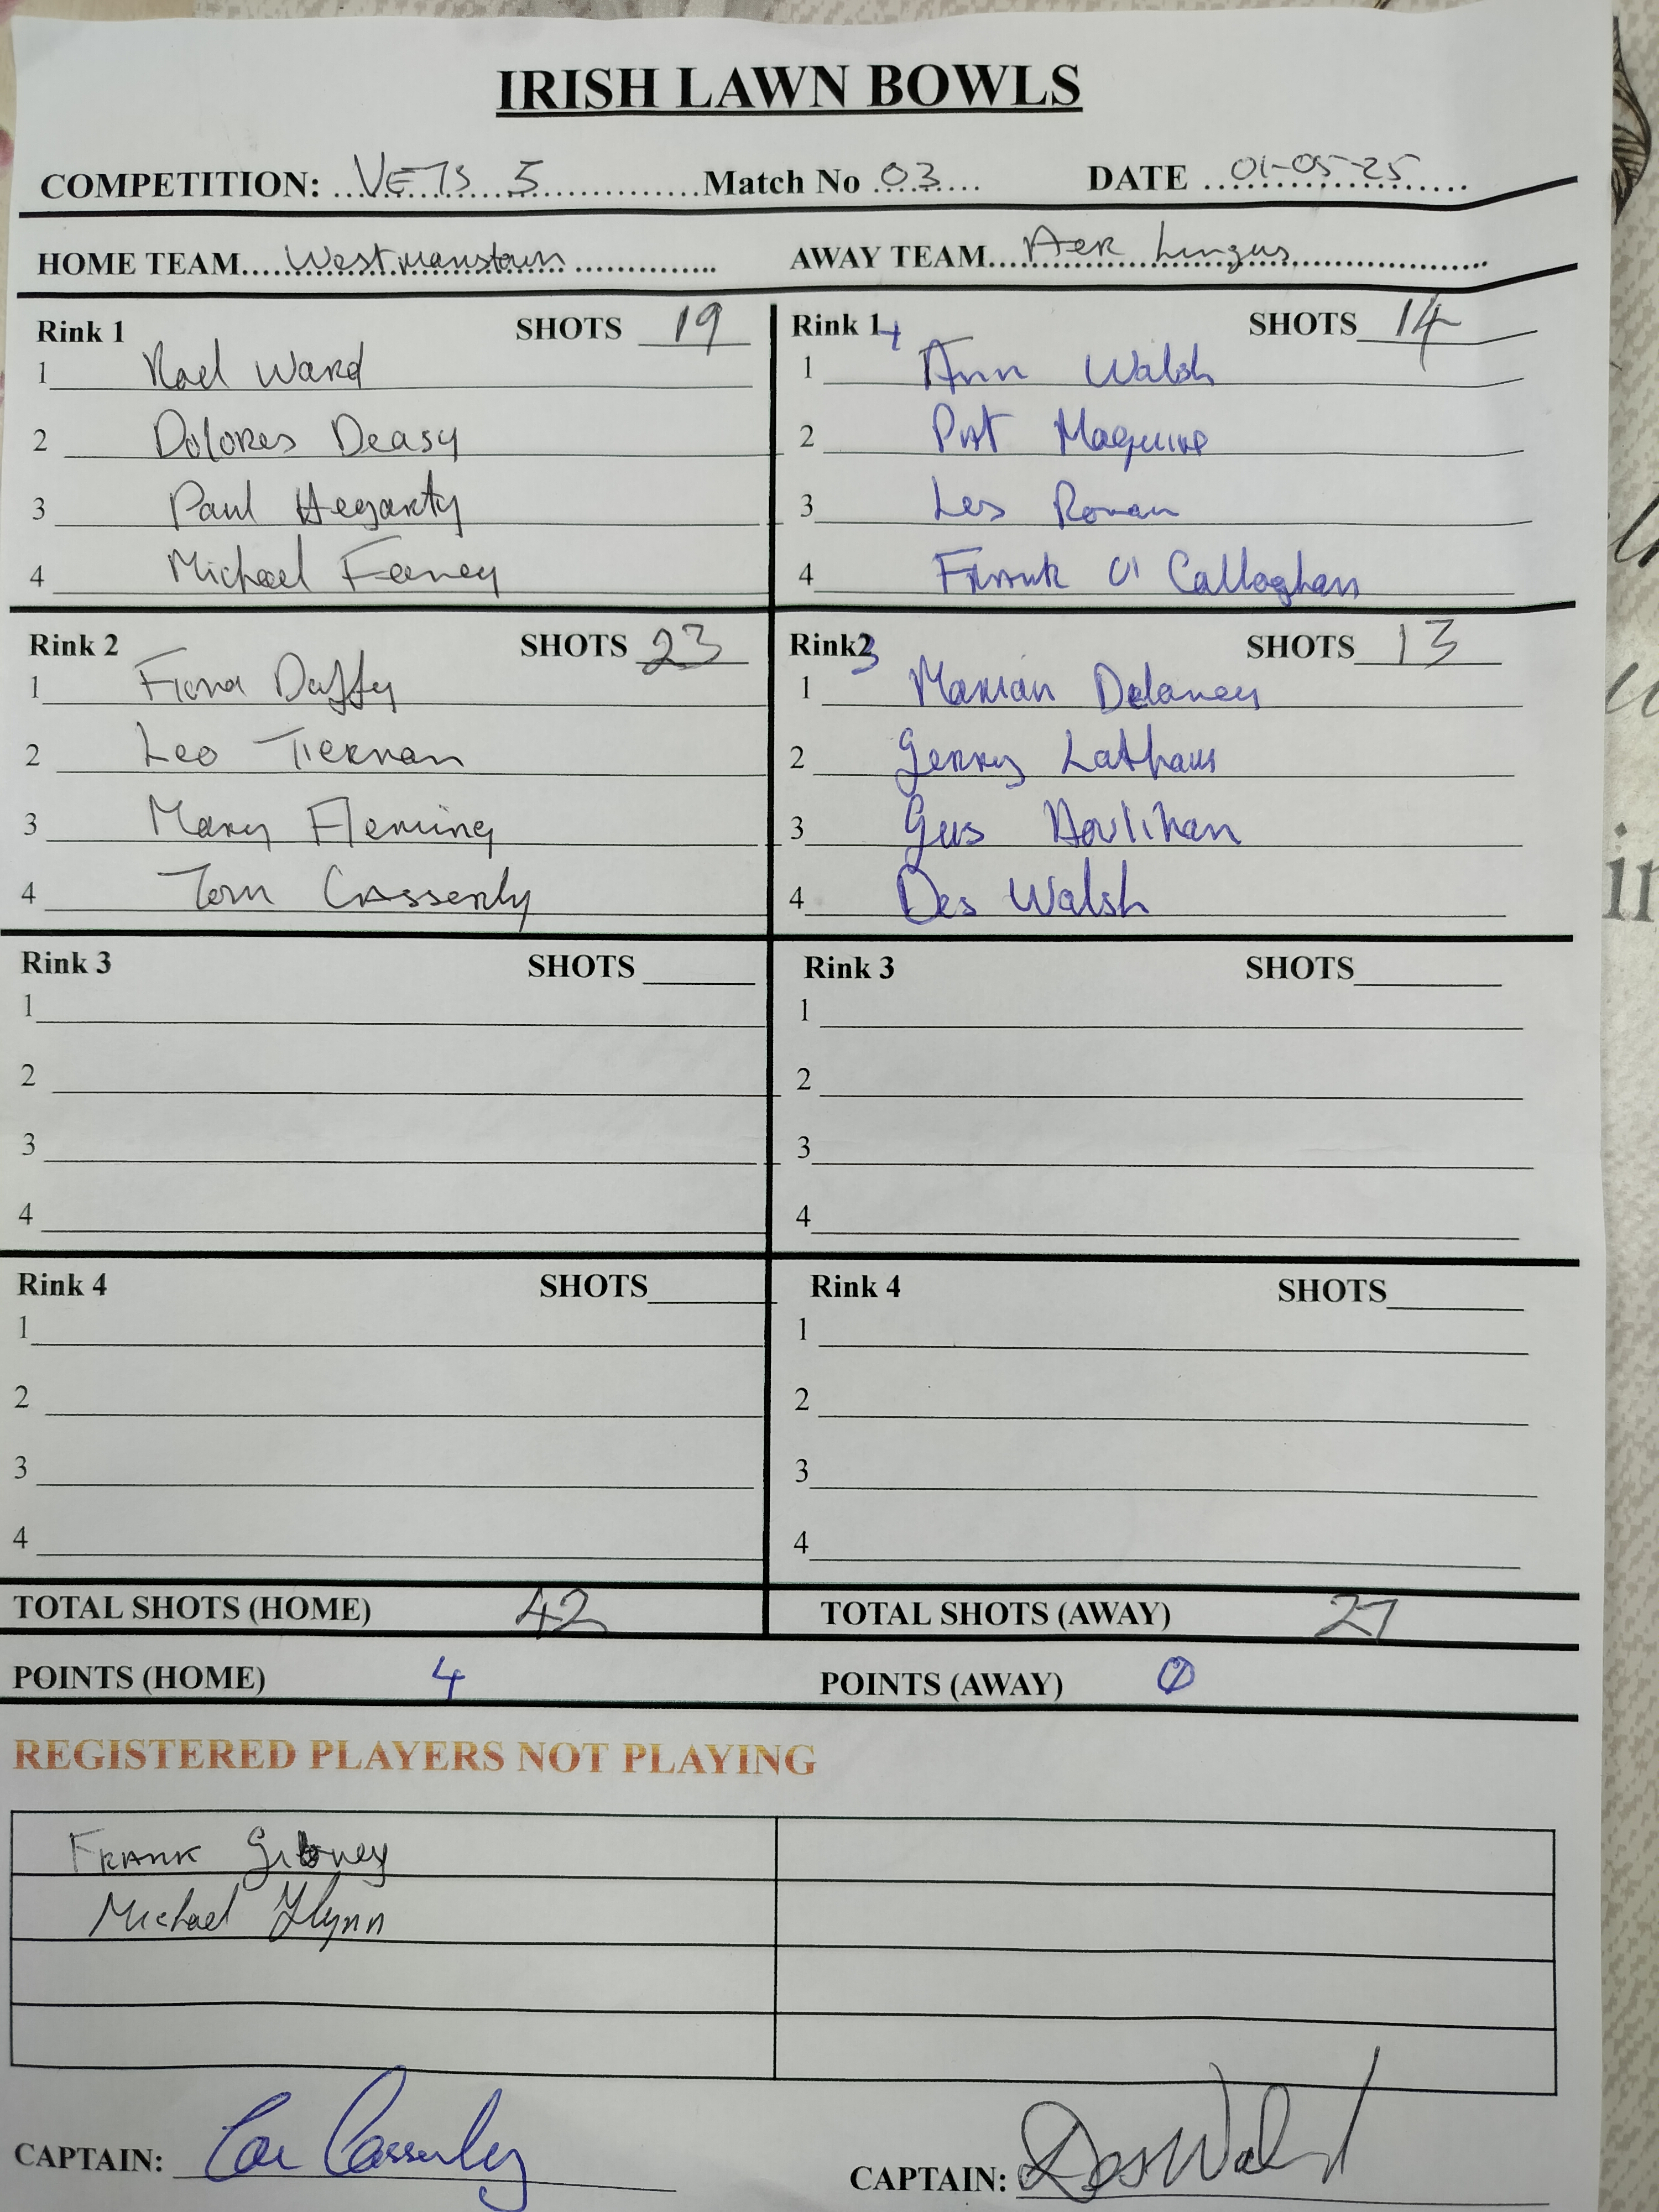 IRISH LAWN BOWLS
COMPETITION: VETS 5 Match No 03 DATE 01-05-25
HOME TEAM Westmanstown AWAY TEAM Aer Lingus
Rink 1 SHOTS 19
1 Noel Ward
2 Dolores Deasy
3 Paul Hegarty
4 Michael Feeney
Rink 1 4 SHOTS 14
1 Ann Walsh
2 Pat Maguire
3 Les Ronan
4 Frank O'Callaghan
Rink 2 SHOTS 23
1 Fiona Duffy
2 Leo Tiernan
3 Mary Fleming
4 Tom Casserly
Rink2 3 SHOTS 13
1 Marian Delaney
2 Gerry Latham
3 Gus Houlihan
4 Des Walsh
Rink 3 SHOTS
1
2
3
4
Rink 3 SHOTS
1
2
3
4
Rink 4 SHOTS
1
2
3
4
Rink 4 SHOTS
1
2
3
4
TOTAL SHOTS (HOME) 42 TOTAL SHOTS (AWAY) 27
POINTS (HOME) 4 POINTS (AWAY) 0
REGISTERED PLAYERS NOT PLAYING
FRANK Gibney
Michael Flynn
CAPTAIN: Casserley CAPTAIN: Des Walsh